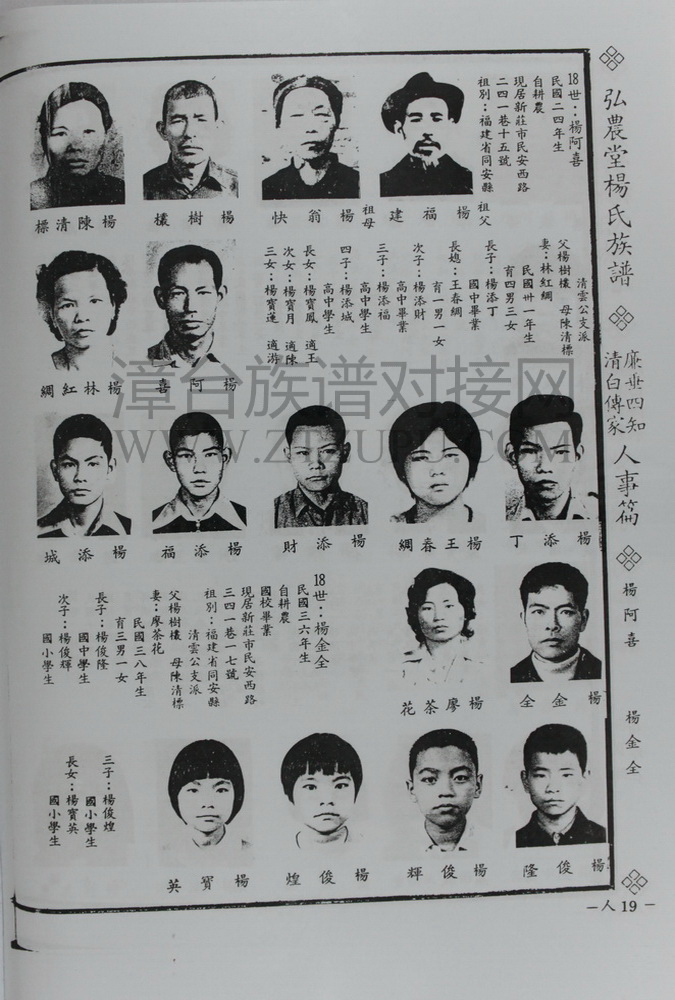 弘農堂楊氏族譜
廉世四知
清白傳家
人事篇
楊阿喜
楊金全
18世：楊阿喜
民國二四年生
自耕農
現居新莊市民安西路
二四一巷十五號
祖別：福建省同安縣
祖父
楊福建
祖母
楊翁快
楊樹欉
楊陳清標
清雲公支派
父楊樹欉 母陳清標
妻：林紅綢
民國卅一年生
育四男三女
長子：楊添丁
國中畢業
長媳：王春綢
育一男一女
次子：楊添財
高中畢業
三子：楊添福
高中學生
四子：楊添城
高中學生
長女：楊寶鳳 適王
次女：楊寶月 適陳
三女：楊寶蓮 適游
楊阿喜
楊林紅綢
漳台族谱对接网
WWW.ZTZUPU.COM
楊添丁
楊王春綢
楊添財
楊添福
楊添城
楊金全
楊廖茶花
18世：楊金全
民國三六年生
自耕農
國校畢業
現居新莊市民安西路
三四一巷一七號
祖別：福建省同安縣
清雲公支派
父楊樹欉 母陳清標
妻：廖茶花
民國三八年生
育三男一女
長子：楊俊隆
國中學生
次子：楊俊輝
國小學生
三子：楊俊煌
國小學生
長女：楊寶英
國小學生
楊俊隆
楊俊輝
楊俊煌
楊寶英
－人19－